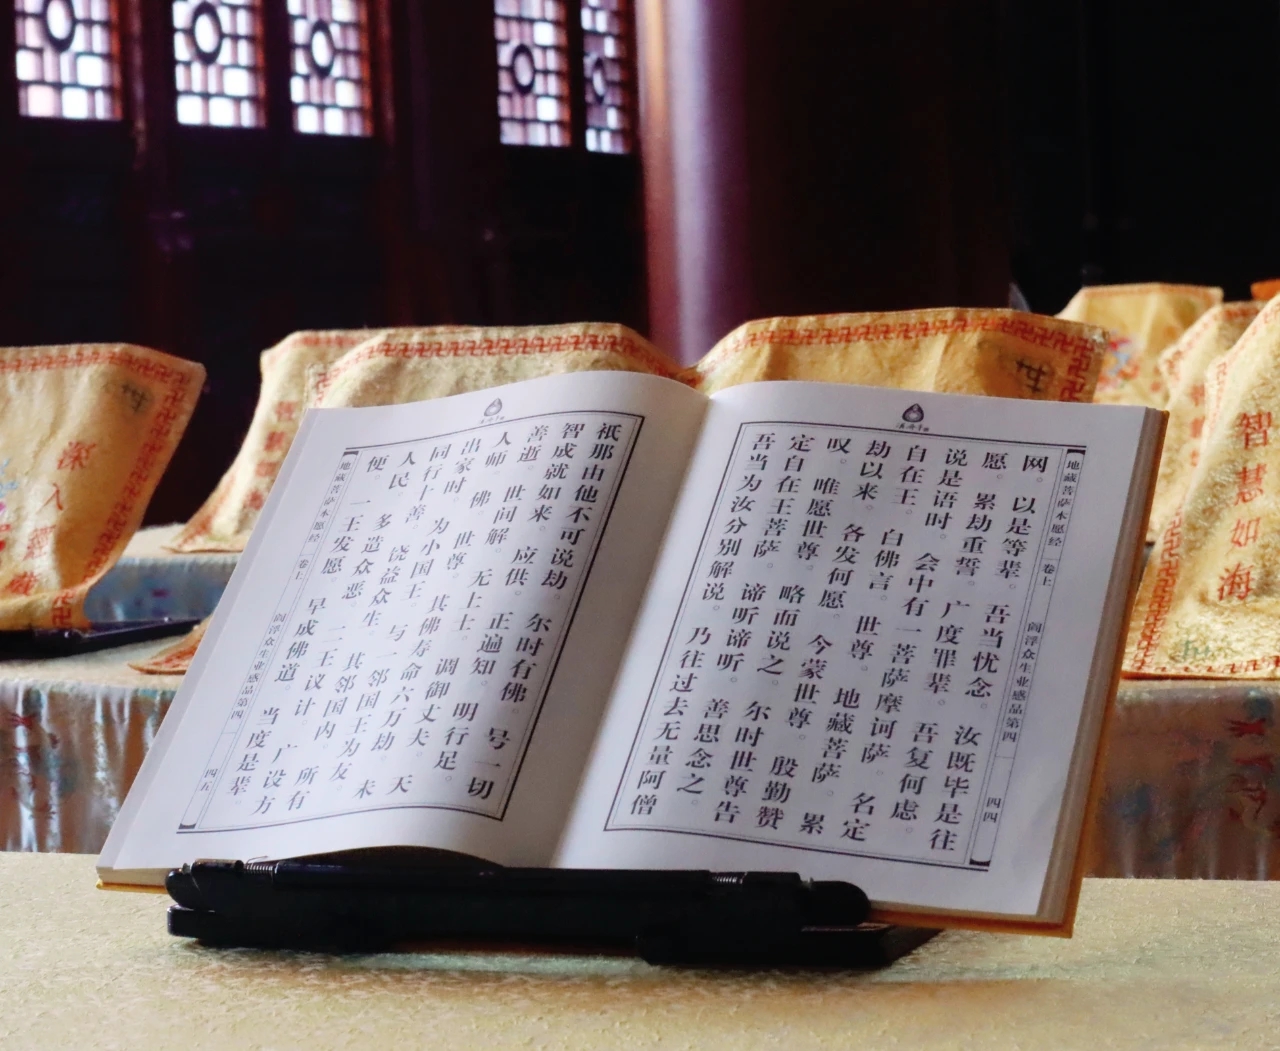 地藏菩萨本愿经 卷上 阎浮众生业感品第四 四四
网。以是等辈。吾当忧念。汝既毕是往
愿。累劫重誓。广度罪辈。吾复何虑。
说是语时。会中有一菩萨摩诃萨。名定
自在王。白佛言。世尊。地藏菩萨。累
劫以来。各发何愿。今蒙世尊。殷勤赞
叹。唯愿世尊。略而说之。尔时世尊告
定自在王菩萨。谛听谛听。善思念之。
吾当为汝分别解说。乃往过去无量阿僧
祇那由他不可说劫。尔时有佛。号一切
智成就如来。应供。正遍知。明行足。
善逝。世间解。无上士。调御丈夫。天
人师。佛。世尊。其佛寿命六万劫。未
出家时。为小国王。与一邻国王为友。
同行十善。饶益众生。其邻国内。所有
人民。多造众恶。二王议计。广设方
便。一王发愿。早成佛道。当度是辈。
地藏菩萨本愿经 卷上 阎浮众生业感品第四 四五
智慧如海
深入經藏